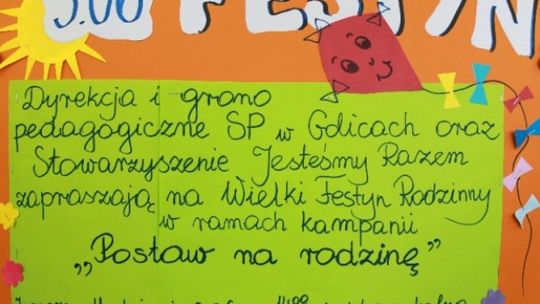 5.06 FESTYN
Dyrekcja i grono
pedagogiczne SP w Golicach oraz
Stowarzyszenie Jesteśmy Razem
zapraszają na Wielki Festyn Rodzinny
w ramach kampanii
„Postaw na rodzinę"